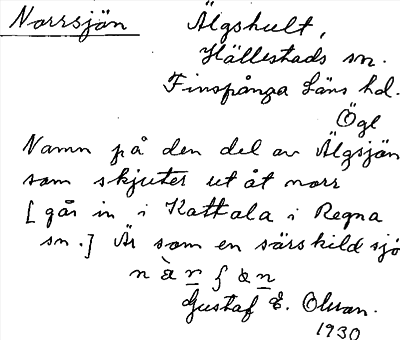 Norrsjön Älgshult,
Hällestads sn.
Finspånga Läns hd.
Ögl
Namn på den del av Älgsjön
som skjuter ut åt norr
[går in i Kattala i Regna
sn.] Är som en särskild sjö
Gustaf E. Olvan.
1930